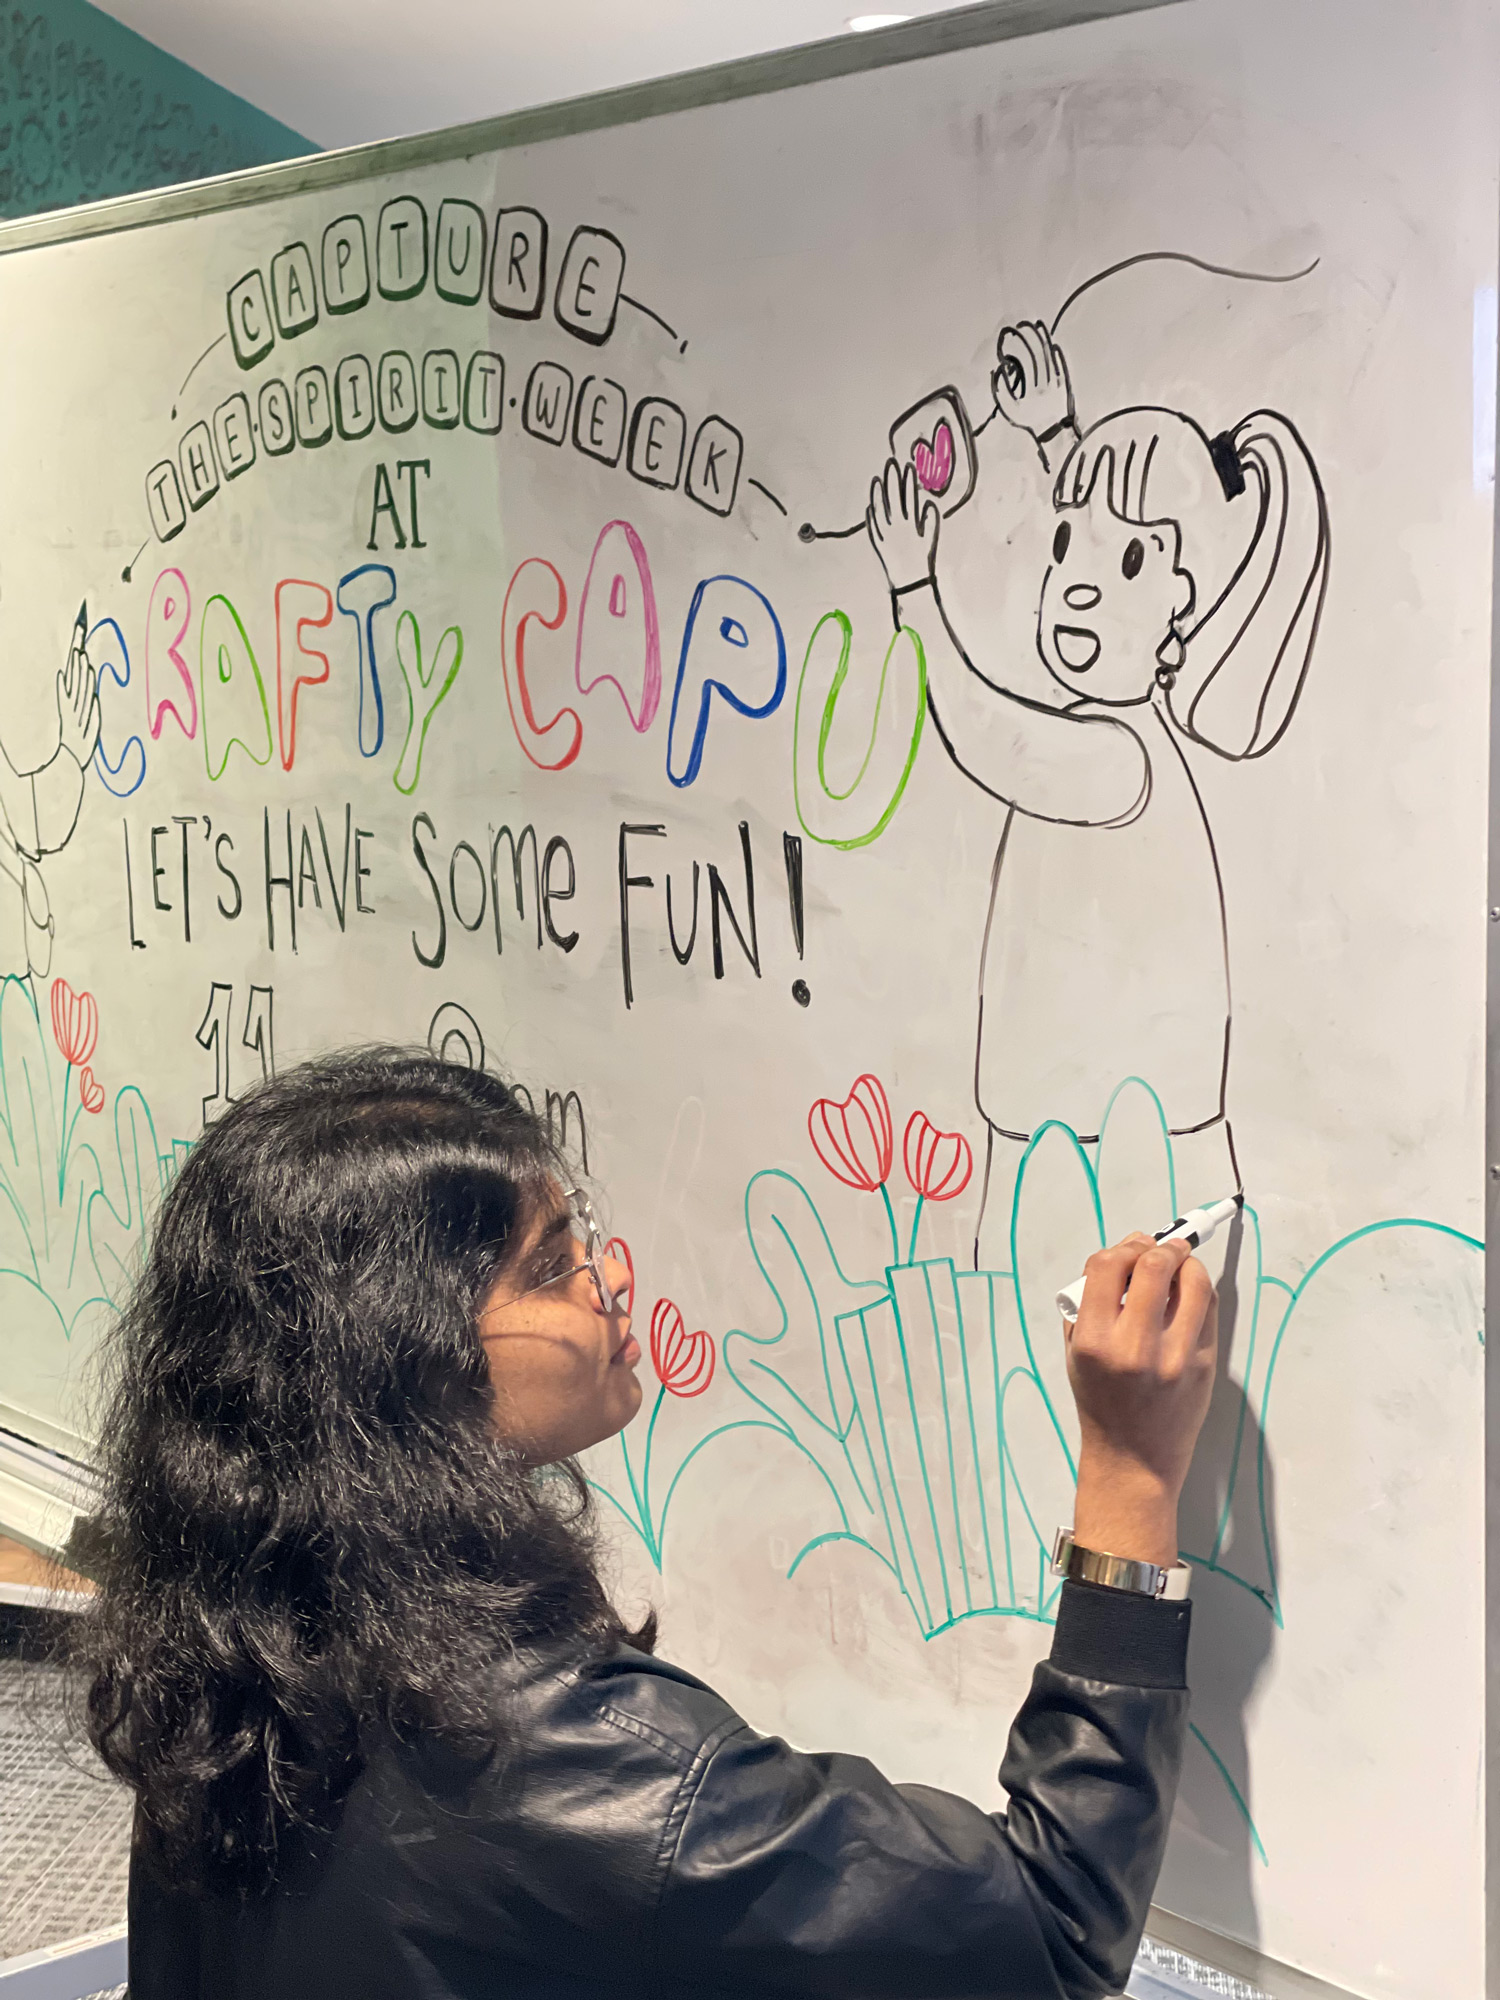 CAPTURE
THE·SPIRIT·WEEK
AT
CRAFTY CAPU
LET'S HAVE SOME FUN!
11